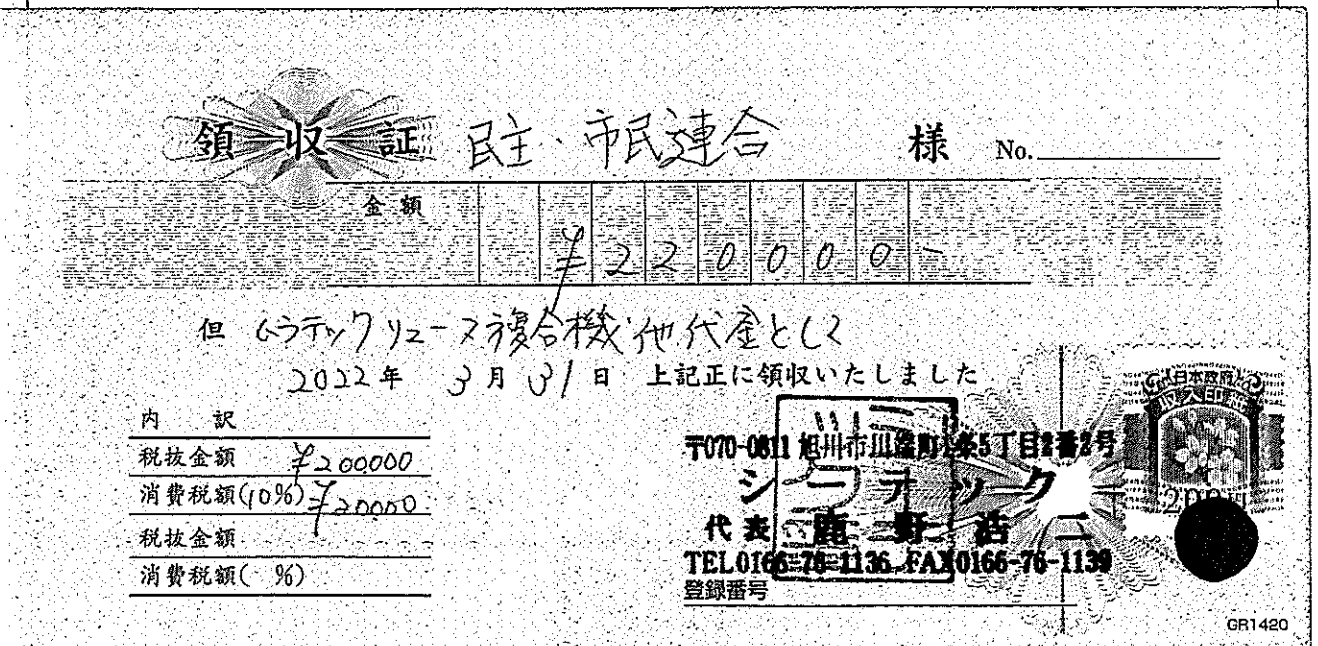 領収証 民主・市民連合 様 No.
金額 ¥220000-
但 ムラテックリユース複合機他代金として
2022年 3月31日 上記正に領収いたしました
内訳
税抜金額 ¥200000
消費税額(10%) ¥20000
税抜金額
消費税額( %)
〒070-0811 旭川市川端町1条5丁目2番2号
シーテック
代表 鹿野浩二
TEL0166-76-1136 FAX0166-76-1139
登録番号
日本政府
収入印紙
200円
GR1420